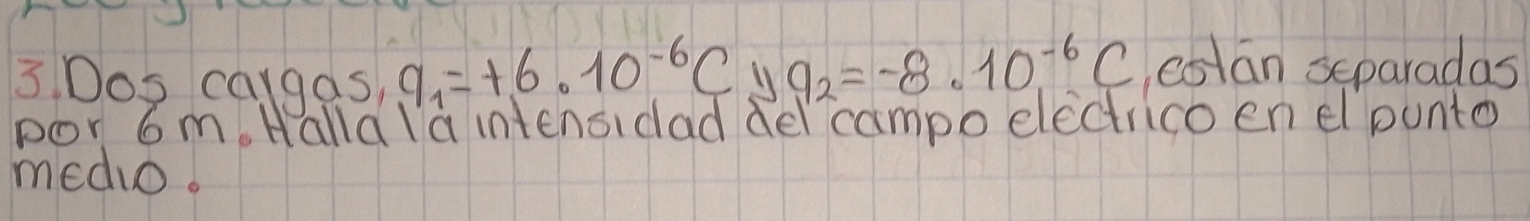 3. Dos cargas, q₁=+6.10⁻⁶C y q₂=-8.10⁻⁶C, están separadas
por 6m. Halla la intensidad del campo eléctrico en el punto
medio.